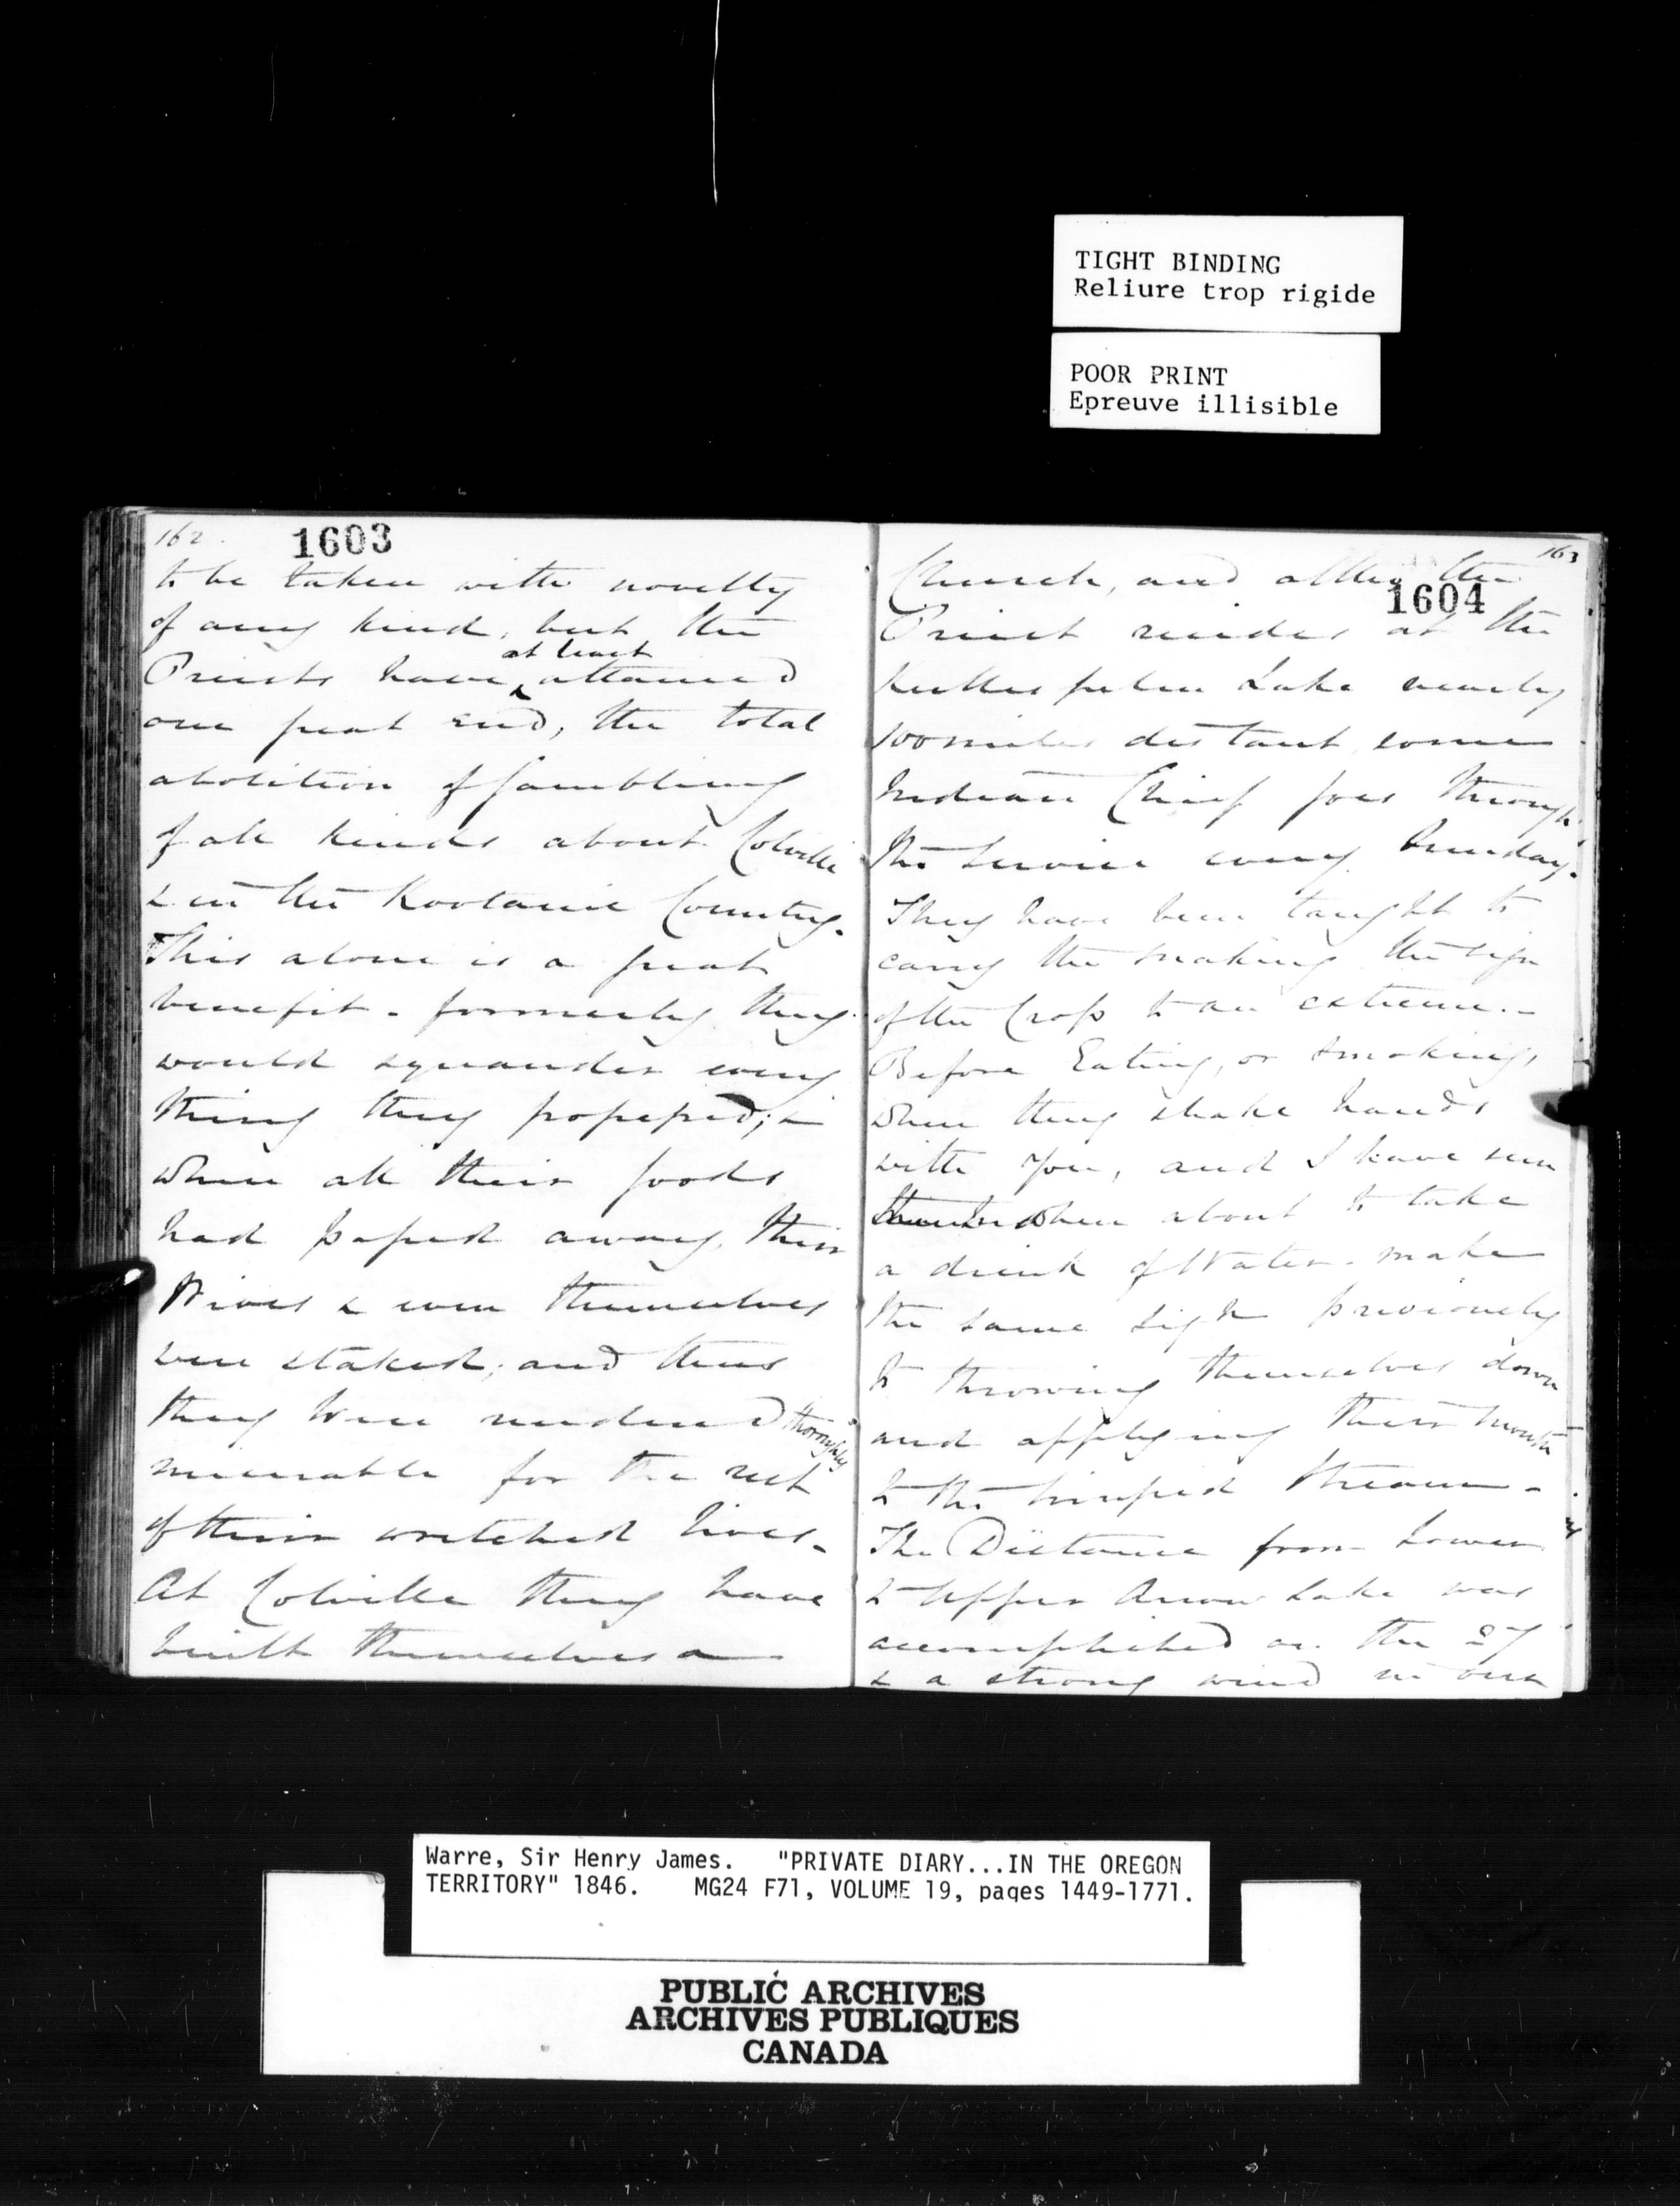 TIGHT BINDING
Reliure trop rigide
POOR PRINT
Epreuve illisible
162.
1603
to be taken with novelty
of any kind, but the
Priests have at least attained
one great end, the total
abolition of Gambling
of all kinds about Colville
& in the Kootanie Country.
This alone is a great
benefit - formerly they
would squander every
thing they possessed; &
when all their goods
had passed away, their
Wives & even themselves
were staked; and thus
they were rendered thoroughly
miserable for the rest
of their wretched lives.
At Colville they have
built themselves a
163
1604
Church, and altho the
Priest resides at the
Kullespelm Lake nearly
100 miles distant some
Indian Chief goes through
the service every Sunday.
They have been taught to
carry the making the sign
of the Cross to an extreme.-
Before Eating, or smoking,
when they shake hands
with you, and I have seen
them when about to take
a drink of Water - make
the same sign previously
to throwing themselves down
and applying their mouth
to the limpid stream -
The Distance from Lower
to Upper Arrow Lake was
accomplished on the 27
& a strong wind in our
Warre, Sir Henry James. "PRIVATE DIARY...IN THE OREGON
TERRITORY" 1846. MG24 F71, VOLUME 19, pages 1449-1771.
PUBLIC ARCHIVES
ARCHIVES PUBLIQUES
CANADA